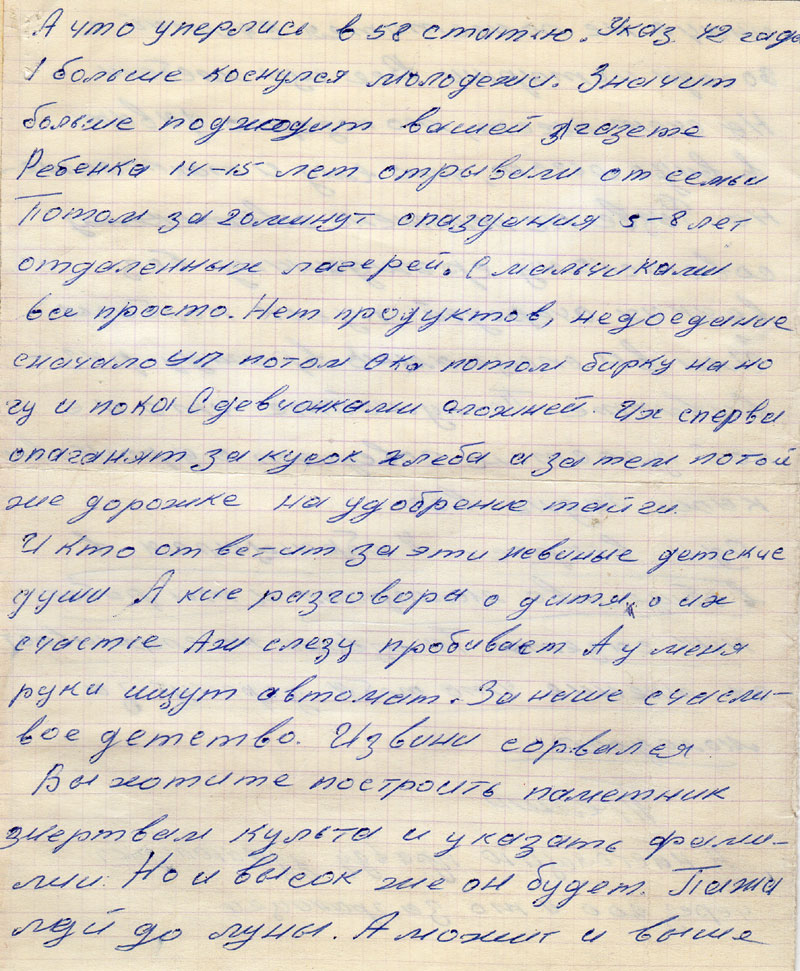 А что уперлись в 58 статью. Указ 42 года
больше коснулся молодежи. Значит
больше подходит вашей газете
Ребенка 14-15 лет отрывали от семьи
Потом за 20 минут опаздания 5-8 лет
отдаленных лагерей. С мальчиками
все просто. Нет продуктов, недоедание
сначало УП потом Ока потом бирку на но
гу и пока С девчонками сложней. Их сперва
опаганят за кусок хлеба а затем по той
же дорожке на удобрение тайги.
И кто ответит за эти невиные детские
души А кие разговора о дитях, о их
счастье Аж слезу пробивает А у меня
руки ищут автомат. За наше счасли-
вое детство. Извини сорвался
Вы хотите построить паметник
жертвам культа и указать фами-
лии. Но и высок же он будет. Пажа
луй до луны. А можит и выше